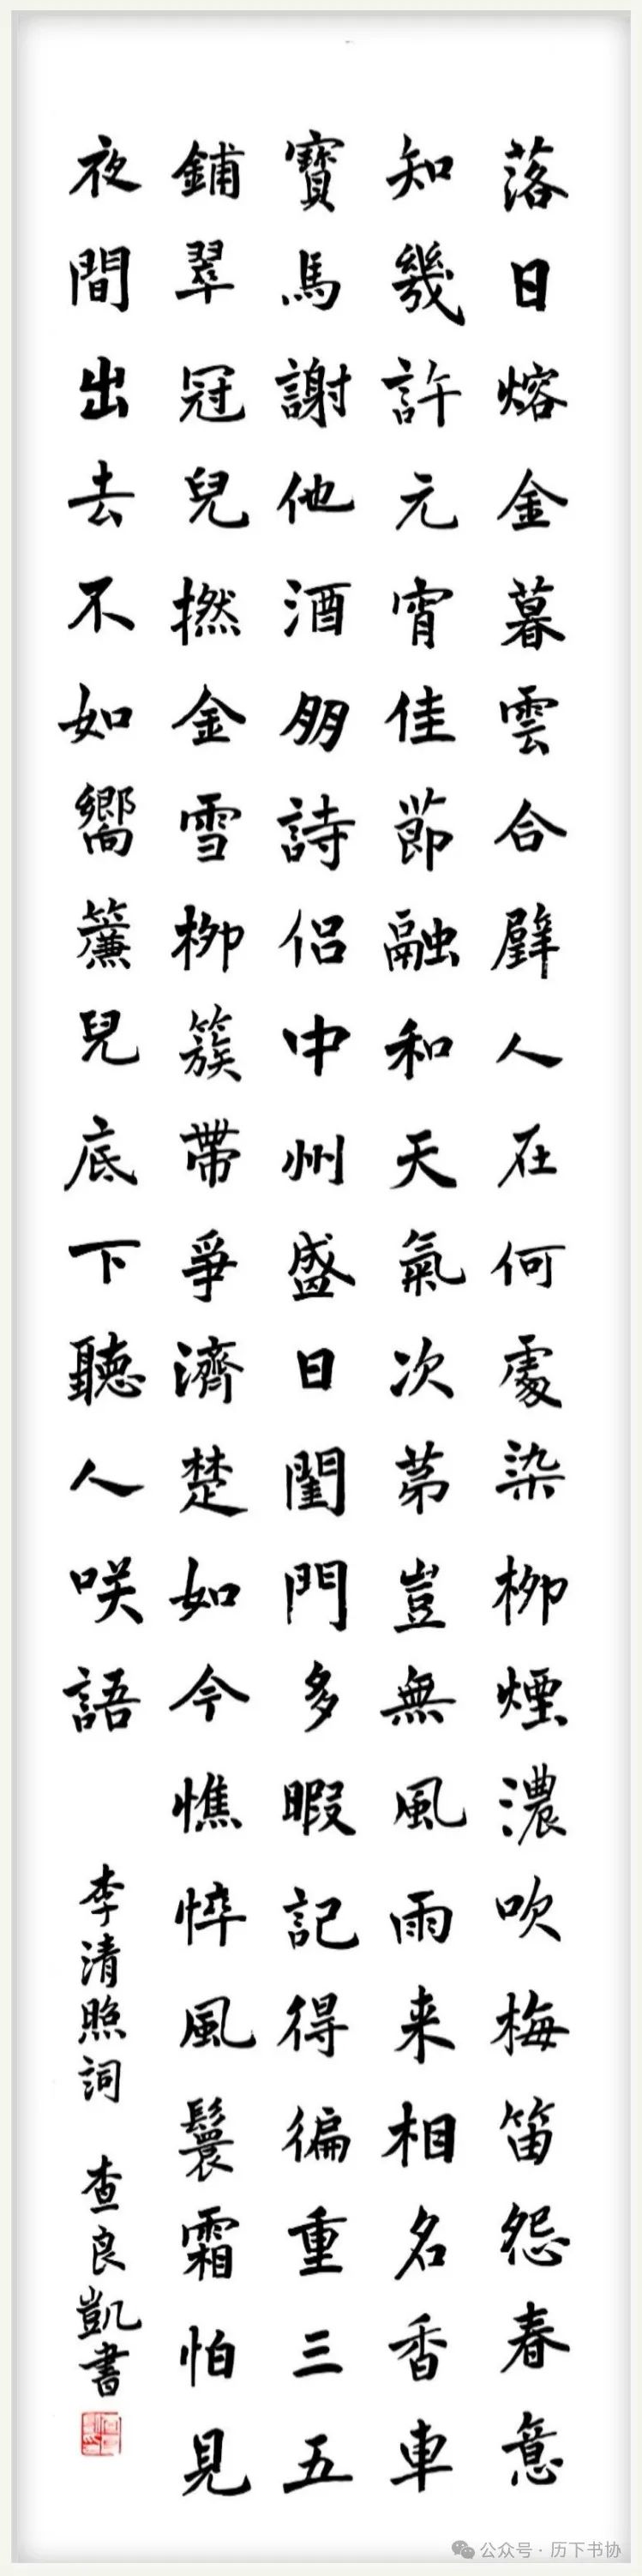 落日熔金暮雲合璧人在何處染栁煙濃吹梅笛怨春意
知幾許元宵佳莭融和天氣次苐豈無風雨来相名香車
寶馬謝他酒朋詩侶中州盛日閨門多暇記得徧重三五
鋪翠冠兒撚金雪栁簇帶爭濟楚如今憔悴風鬟霜怕見
夜間出去不如嚮簾兒底下聽人咲語
李清照詞 查良凱書
公众号·历下书协